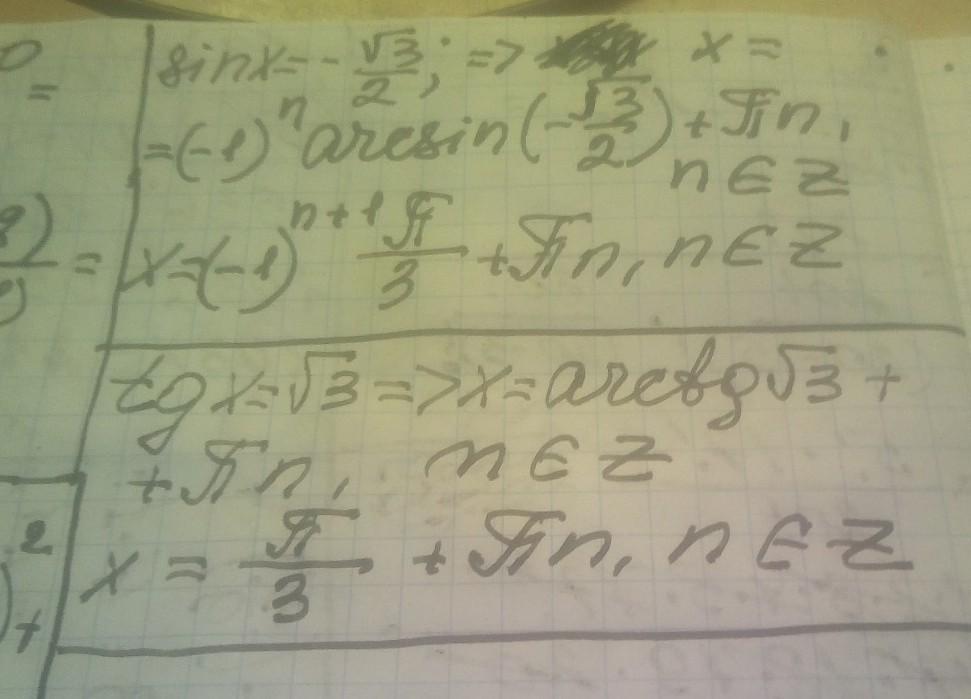 sinx=-√3/2; => x =
=(-1)^n arcsin(-√3/2)+πn,
n∈Z
x=(-1)^(n+1) π/3 +πn, n∈Z
tg x=√3=>x=arctg√3+
+πn, n∈Z
x = π/3 + πn, n∈Z
=
=
2
)+